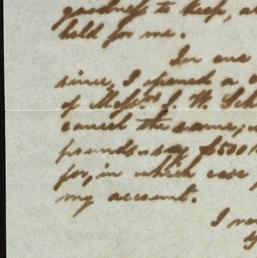 goodness to keep, a
held for me.
In one
since, I opened a
of Messrs J. W. Sch
cancel the same,
pounds - say £500
for, in which case
my account.
I